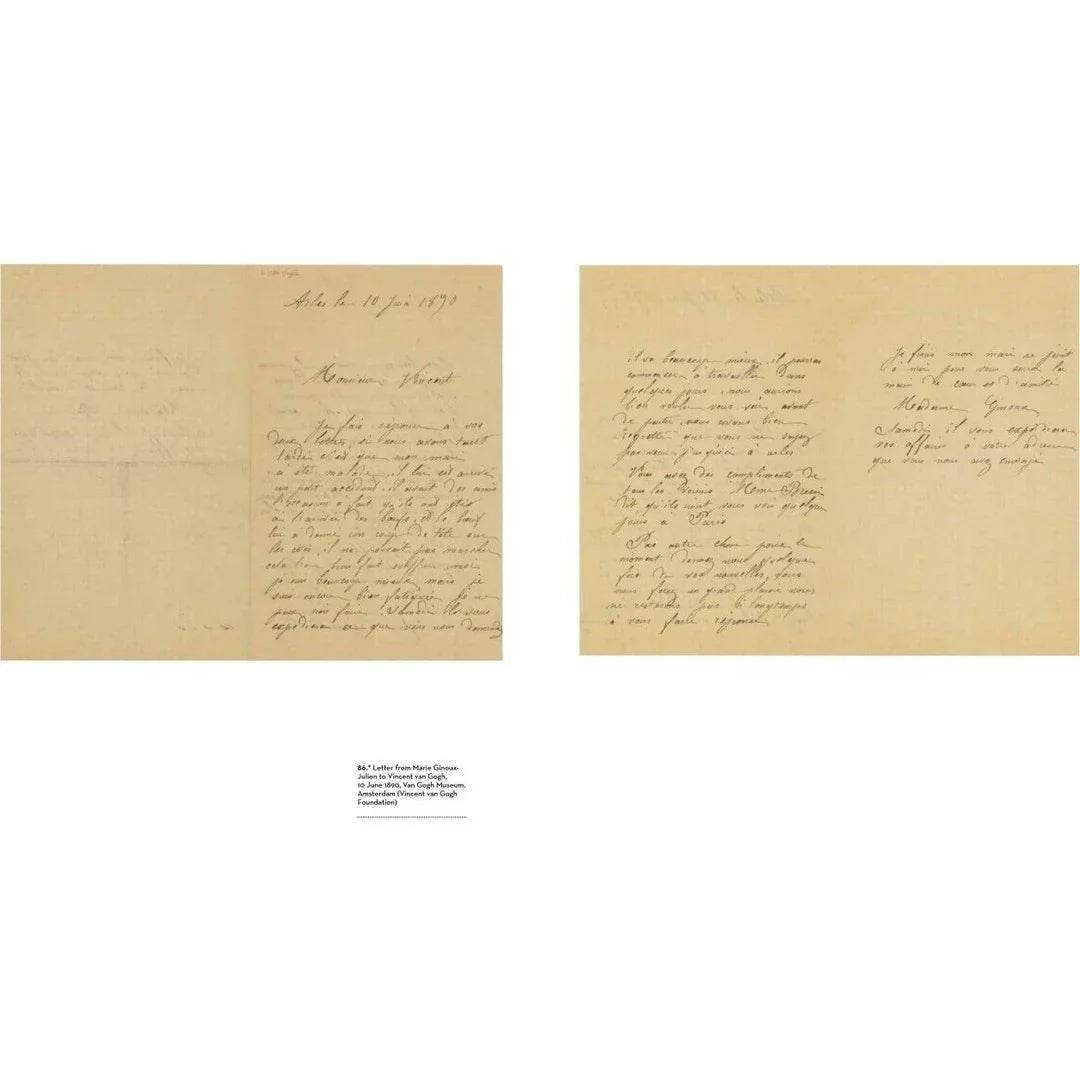 Arles le 10 Juin 1890
Monsieur Vincent
Je fais reponse à vos
deux lettres, si nous avons
tardé c'est que mon mari
a été malade, il lui est arrivé
un petit accident, il avait des amis
l'occasion a fait qu'ils ont
à l'arrivée des boeufs, et le boeuf
lui à donné un coup de tête sur
les, il ne pouvait pas marcher
cela l'a bien fait souffrir, moi
je suis beaucoup mieux mais je
suis encore bien fatiguée Je ne
peux rien faire. Samedi ils vous
expedieron ce que vous nous demandez
il va beaucoup mieux, il pourra
commencer à travailler dans
quelques jours, nous aurions
bien voulu vous voir avant
de partir, nous avons bien
regretté que vous ne soyez
pas venu jusqu'ici à arles
Vous avez des compliments de
tous les voisins Meme
dit qu'ils vont vous voir quelque
jours à Paris
Pas autre chose pour le
moment donnez nous quelque
fois de vos nouvelles, vous
nous ferez un grand plaisir nous
ne resterons pas si longtemps
à vous faire reponse
Je finis mon mari se joint
à moi pour vous serrer la
main de coeur et d'amitié
Madame Ginoux
Samedi il vous expedieron
vos affaires à votre adresse
que vous nous avez envoyé
86.* Letter from Marie Ginoux-
Julien to Vincent van Gogh,
10 June 1890, Van Gogh Museum,
Amsterdam (Vincent van Gogh
Foundation)